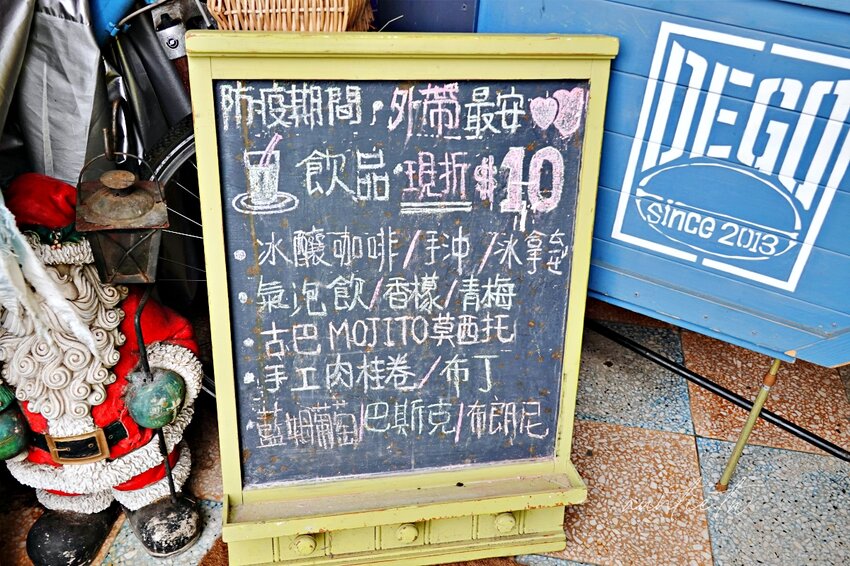 防疫期間，外帶最安
飲品·現折$10
·冰釀咖啡/手沖/冰拿鐵
·氣泡飲/香檬/青梅
·古巴MOJITO莫西托
·手工肉桂卷/布丁
藍姆葡萄/巴斯克/布朗尼
DEGO
since 2013